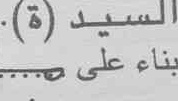 السيد (ة).
بناء على ......